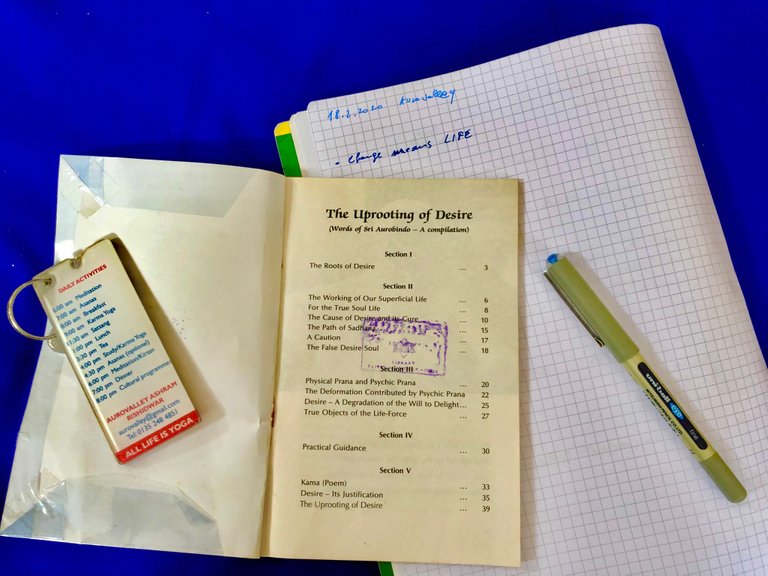 18.2.2020 Aurovalley
- Change means LIFE
The Uprooting of Desire
(Words of Sri Aurobindo – A compilation)
Section I
The Roots of Desire ... 3
Section II
The Working of Our Superficial Life ... 6
For the True Soul Life ... 8
The Cause of Desire and its Cure ... 10
The Path of Sadhana ... 15
A Caution ... 17
The False Desire Soul ... 18
LIBRARY
Section III
Physical Prana and Psychic Prana ... 20
The Deformation Contributed by Psychic Prana 22
Desire – A Degradation of the Will to Delight... 25
True Objects of the Life-Force ... 27
Section IV
Practical Guidance ... 30
Section V
Kama (Poem) ... 33
Desire – Its Justification ... 35
The Uprooting of Desire ... 39
DAILY ACTIVITIES
6:00 am Meditation
7:00 am Asanas
8:00 am Breakfast
9:00 am Karma Yoga
11:30 am Satsang
pm Lunch
pm Tea
pm Study/Karma Yoga
4:30 pm Asanas (optional)
6:00 pm Meditation/Kirtan
7:00 pm Dinner
8:00 pm Cultural programme
AUROVALLEY ASHRAM
RISHIDWAR
aurovalley@gmail.com
Tel: 0135 248 4851
ALL LIFE IS YOGA
uni-ball eye
fine